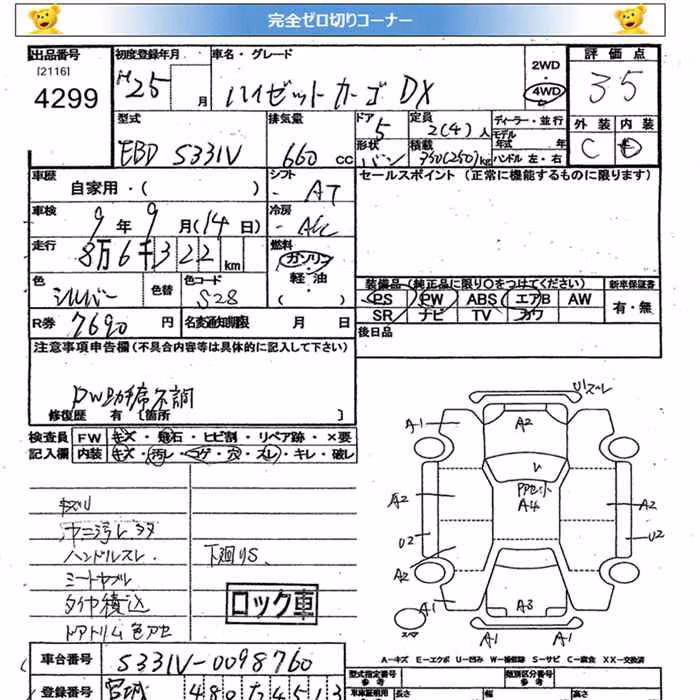 完全ゼロ切りコーナー
出品番号
[2116]
4299
初度登録年月
H25 月
車名・グレード
ハイゼットカーゴ DX
2WD
4WD
評価点
3 5
外装 内装
C D
型式
EBD S331V
排気量
660 cc
ドア
5
形状
バン
定員
2(4)人
積載
350(250)kg
ディーラー・並行
モデル
年式 年
ハンドル 左・右
車歴
自家用・( )
シフト
- AT
セールスポイント (正常に機能するものに限ります)
車検
9年9月(14日)
冷房
- A/C
走行
8万6千322km
燃料
ガソリン
軽油
色
シルバー
色替
色コード
S28
装備品(純正品に限り○をつけてください)
新車保証書
PS PW ABS エアB AW
SR ナビ TV カワ
有・無
R券 7690円
名変通知期限 月 日
後日品
注意事項申告欄(不具合内容等は具体的に記入して下さい)
PW助手席不調
修復歴 有 [箇所 ]
検査員 FW キズ・飛石・ヒビ割・リペア跡・×要
記入欄 内装 キズ・汚レ・コゲ・穴・スレ・キレ・破レ
キズU
ヤニ汚レ
ハンドルスレ.
下廻りS.
シートヤブレ
タイヤ積込
ロック車
ドアトリム色アセ
U1ズレ
A1
A2
V
A4
A2
A2
U2
U2
A2
A1
A3
スペア
A1
A1
A-キズ E-エクボ U-凹み W-補修跡 S-サビ C-腐食 XX-交換済
車台番号 S331V-0098760
型式指定番号
類別区分番号
参考
登録番号 宮城 480 た 4513
車庫証明用
参考
長さ
幅
高さ